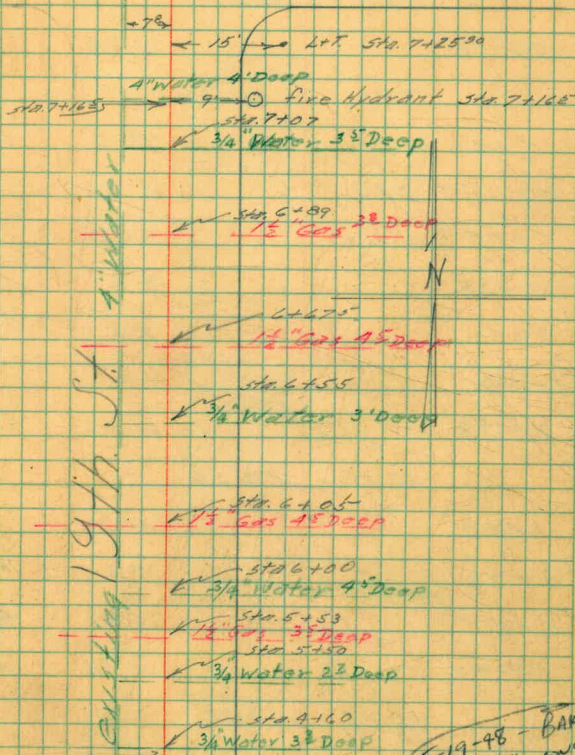 7⁸
15' L+T. Sta. 7+25⁹⁰
4" Water 4' Deep
Sta. 7+16⁵ 9' fire Hydrant Sta. 7+16⁵
Sta. 7+07
3/4" Water 3⁵ Deep
Sta. 6+89
1½" Gas 3⁸ Deep
N
6+67⁵
1½" Gas 4⁵ Deep
Sta. 6+55
3/4" Water 3' Deep
Sta. 6+05
1½" Gas 4⁵ Deep
Sta 6+00
3/4" Water 4⁵ Deep
Sta. 5+53
1½" Gas 3⁵ Deep
Sta. 5+50
3/4" Water 2⁷ Deep
Sta. 4+60
3/4" Water 3² Deep
19th. St.
existing 4" Water
-19-48 - BAK